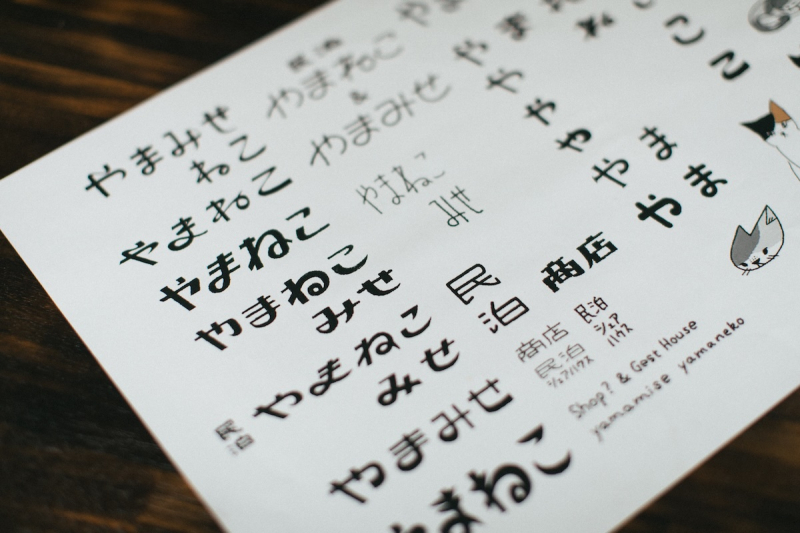 民泊
やまねこ
&
やまみせ
やまみせ
ねこ
やまねこ
やまねこ
やまねこ
みせ
やまねこ
みせ
やまみせ
やまねこ
民泊
やまねこ
みせ
民泊
商店
商店
民泊
シェアハウス
民泊
シェア
ハウス
や
や
や
やま
やま
こ
こ
Shop? & Gest House
yamamise yamaneko